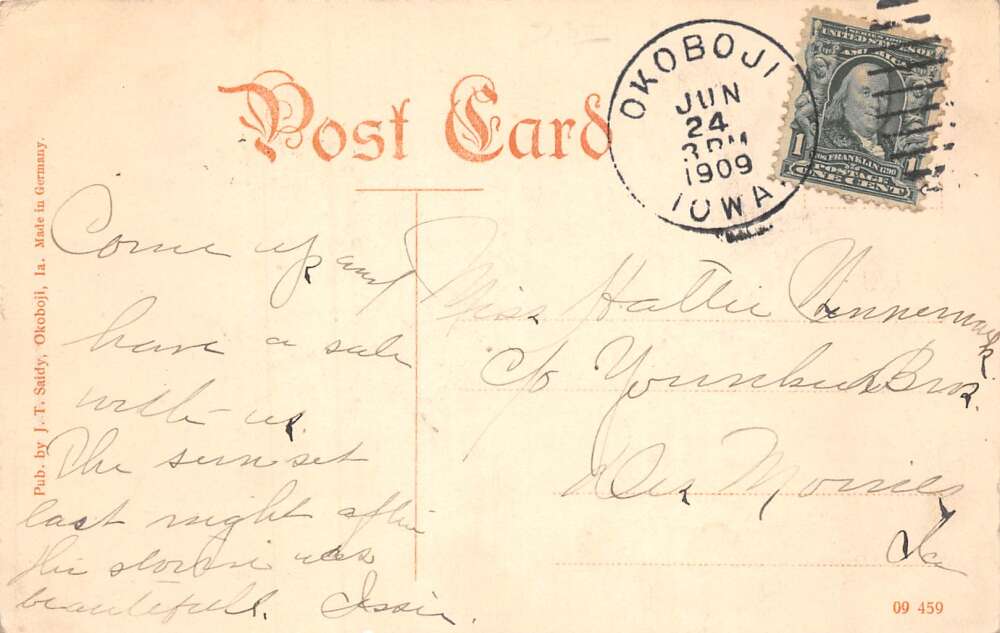 Post Card
OKOBOJI
JUN
24
3 PM
1909
IOWA.
UNITED STATES OF
AMERICA
1
FRANKLIN
POSTAGE
ONE CENT
Pub. by J. T. Saidy, Okoboji, Ia. Made in Germany.
Come up and
have a sale
with us.
The sunset
last night after
the storm was
beautifull.
Miss Hattie
c/o Younkers Bros.
Des Moines
Ia
09 459